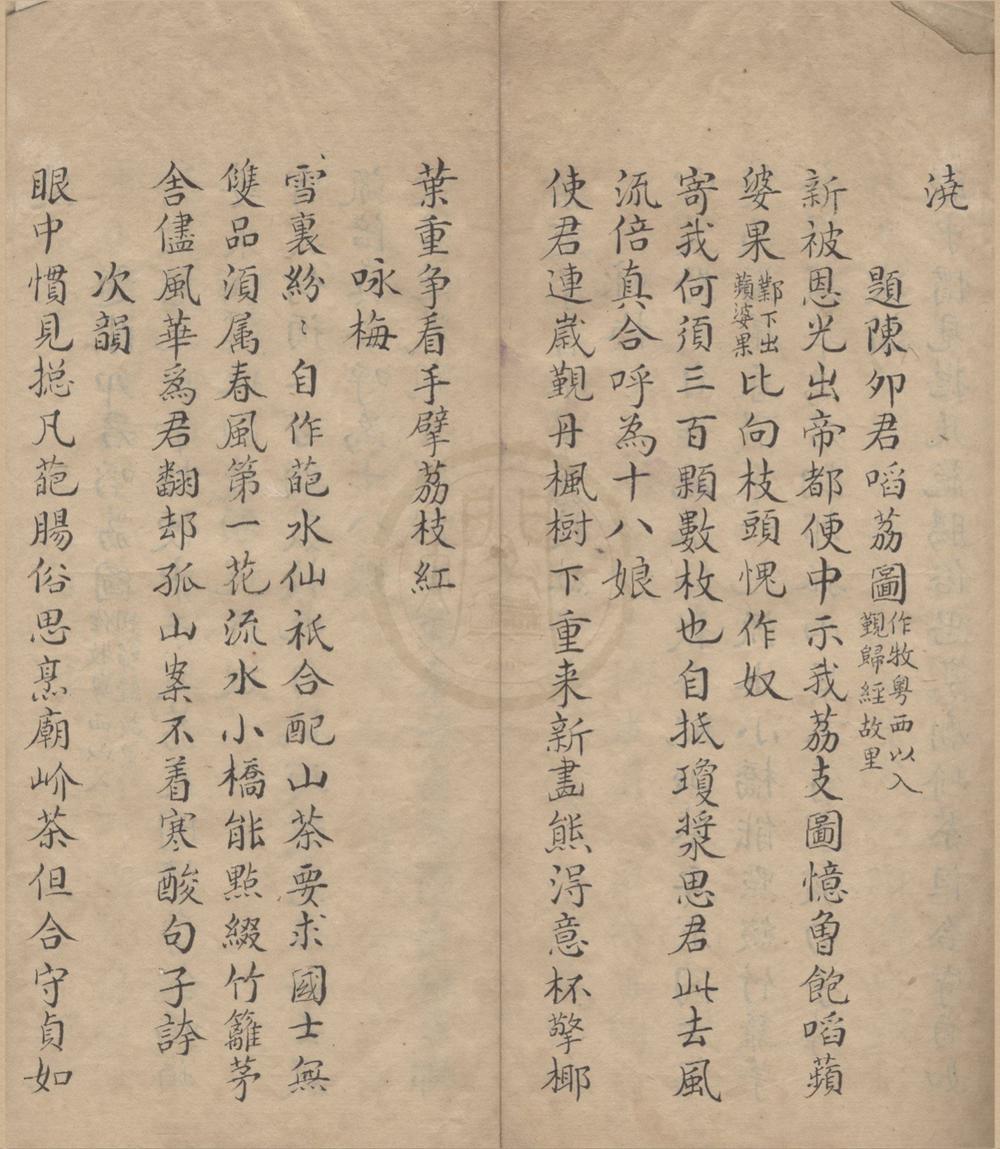 澆
題陳夘君啗荔圖作牧粵西以入覲歸經故里
新被恩光出帝都便中示我荔支圖憶曾飽啗蘋
婆果鄴下出蘋婆果比向枝頭愧作奴
寄我何須三百顆數枚也自抵瓊漿思君此去風
流倍真合呼為十八娘
使君連嵗覲丹楓樹下重来新畫熊淂意杯擎椰
葉重争看手擘荔枝紅
咏梅
雪裏紛〻自作葩水仙祇合配山茶要求國士無
雙品湏属春風第一花流水小橋能點綴竹籬茅
舍儘風華為君翻却孤山案不着寒酸句子誇
次韻
眼中慣見摠凡葩腸俗思烹廟岕茶但合守貞如